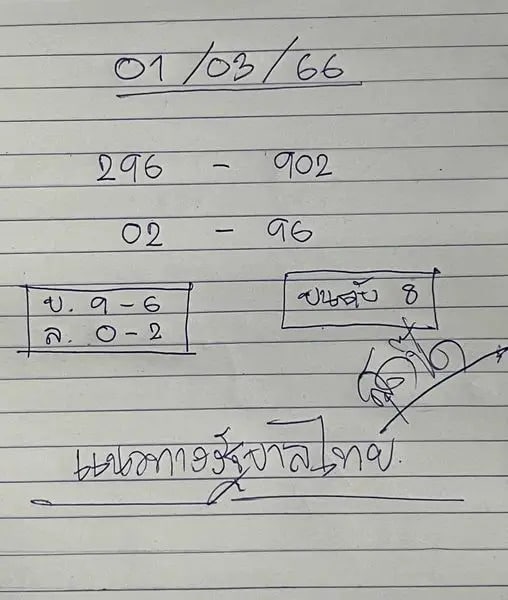 01/03/66
296 - 902
02 - 96
บ. 9-6
ล. 0-2
บนดับ 8
แนวทางรัฐบาลไทย.